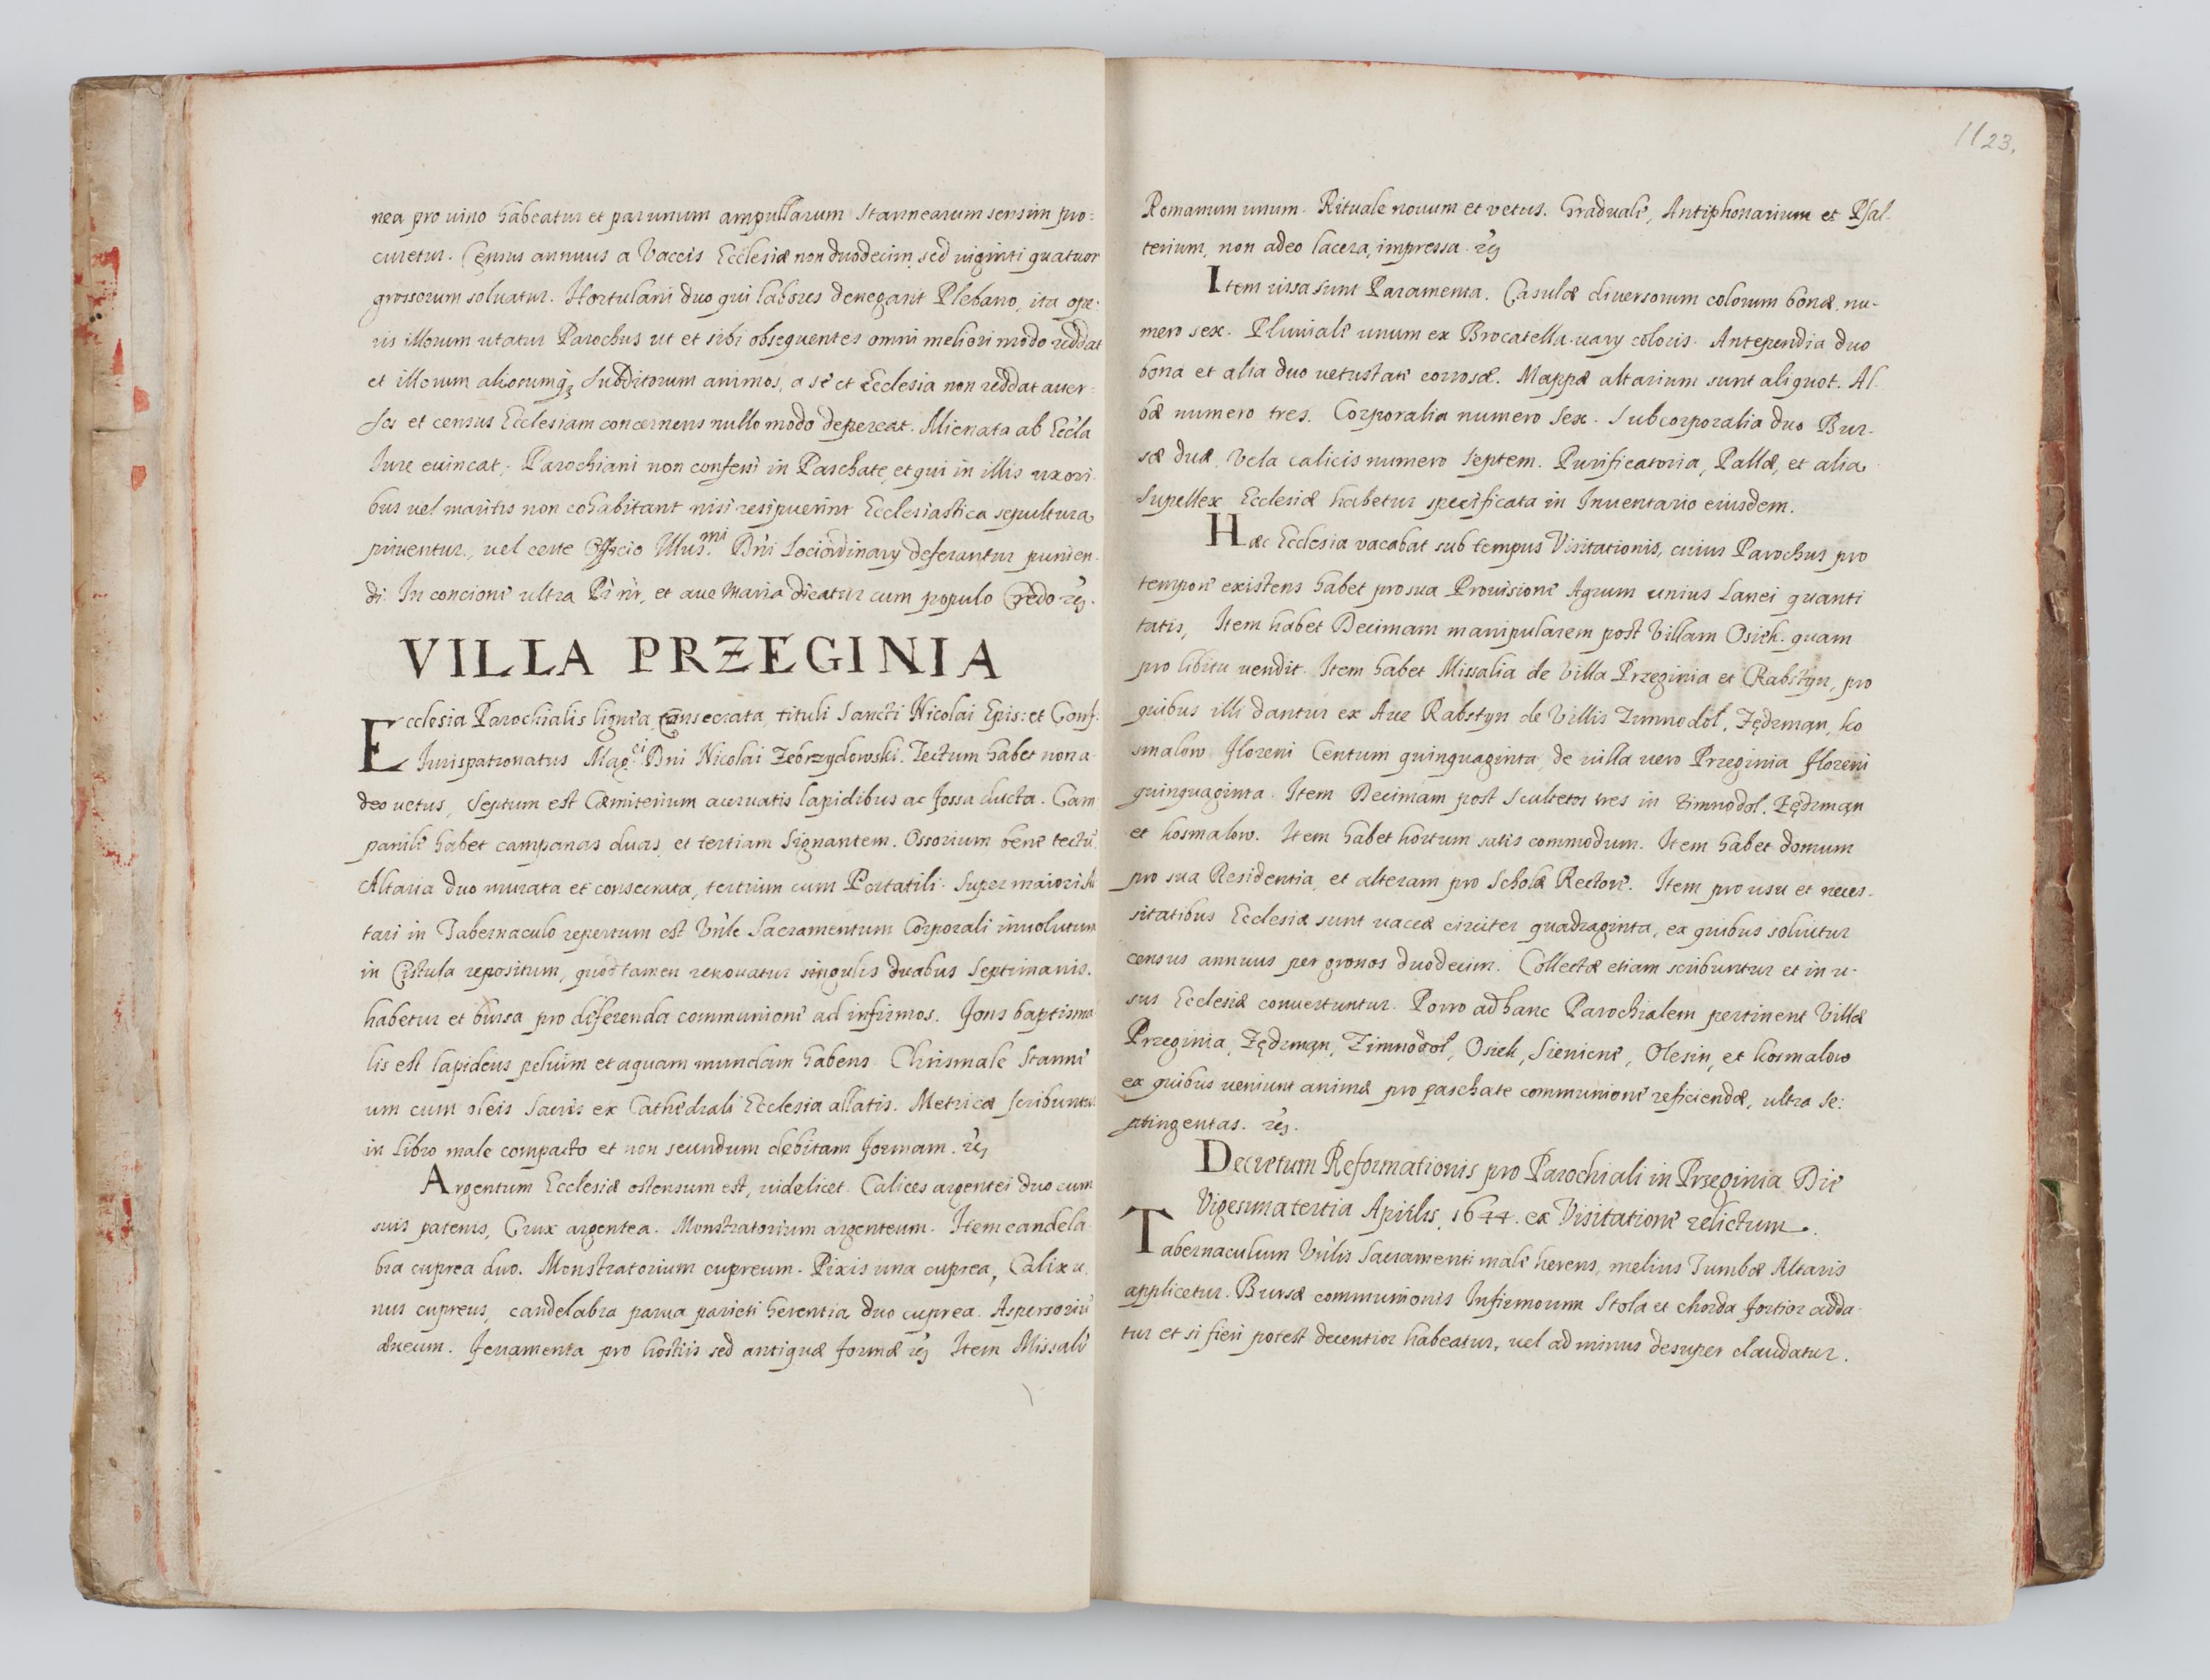 nea pro uino habeatur et par unum ampullarum stannearum sensim pro:
curetur. Census annuus a Vaccis Ecclesiæ non duodecim sed uiginti quatuor
grossorum soluatur. Hortulani duo qui labores denegant Plebano, ita ope:
ris illorum utatur Parochus ut et sibi obsequentes omni meliori modo reddat
et illorum aliorumq3 subditorum animos, a se et Ecclesia non reddat auer
sos et census Ecclesiam concernens nullo modo depereat. Alienata ab Eccla
Iure euincat. Parochiani non confessi in Paschate, et qui in illis uxori
bus uel maritis non cohabitant nisi resipuerint Ecclesiastica sepultura
priuentur, uel certe Officio Illus.mi Dni Lociordinarÿ deferantur punien
di. In concione ultra Pr nr, et aue Maria dicatur cum populo Credo rć.
VILLA PRZEGINIA
Ecclesia Parochialis lignea, consecrata, tituli Sancti Nicolai Epis: et Conf:
Jurispatronatus Mag.ci Dni Nicolai Zebrzydowski. Tectum habet non a
deo uetus, Septum est Cæmiterium aceruatis lapidibus ac fossa ducta. Cam
panile habet campanas duas, et tertiam Signantem. Ossorium bene tectū
Altaria duo murata et consecrata, tertium cum Portatili. Super maiori Al
tari in Tabernaculo repertum est Vnle Sacramentum Corporali inuolutum
in Cistula repositum, quod tamen renouatur singulis duabus Septimanis.
habetur et bursa pro diferenda communione ad infirmos. Fons baptisma
lis est lapideus peluim et aquam mundam habens. Chrismale Stanne
um cum oleis Sacris ex Cathedrali Ecclesia allatis. Metricæ scribuntur
in Libro male compacto et non secundum debitam formam. rć
Argentum Ecclesiæ ostensum est, uidelicet. Calices argentei duo cum
suis patenis, Crux argentea. Monstratorium argenteum. Item candela
bra cuprea duo. Monstratorium cupreum. Pixis una cuprea, Calix u
nus cupreus, candelabra parua parieti herentia duo cuprea. Aspersoriū
æneum. Feramenta pro hostiis sed antiquæ formæ rć Item Missale
1123.
Romanum unum. Rituale nouum et vetus. Graduale, Antiphonarium et Psal-
terium, non adeo lacera, impressa. rć
Item uisa sunt Paramenta. Casulæ diuersorum colorum bonæ, nu-
mero sex. Pluuiale unum ex Brocatella uarÿ coloris. Antependia duo
bona et alia duo uetustate corrosæ. Mappæ altarium sunt aliquot. Al-
bæ numero tres. Corporalia numero Sex. Subcorporalia duo Bur-
sæ duæ, Vela calicis numero Septem. Purificatoria, Pallæ, et alia
Supellex Ecclesiæ habetur specificata in Inuentario eiusdem.
Hæc Ecclesia vacabat sub tempus Visitationis, cuius Parochus pro
tempore existens habet pro sua Prouisione Agrum unius Lanei quanti
tatis, Item habet Decimam manipularem post Villam Osiek. quam
pro libitu uendit. Item habet Missalia de Villa Przeginia et Rabstyn, pro
quibus illi dantur ex Arce Rabstyn de Villis Zimnodol, Zędzman, ko
smalow floreni Centum quinquaginta, de uilla uero Przeginia floreni
quinquaginta. Item Decimam post Scultetos tres in Zimnodol. Zędzman
et kosmalow. Item habet hortum satis commodum. Item habet domum
pro sua Residentia, et alteram pro Scholæ Rectore. Item pro usu et neces-
sitatibus Ecclesiæ sunt uaccæ circiter quadraginta, ex quibus soluitur
census annuus per grossos duodecim. Collectæ etiam scribuntur et in u-
sus Ecclesiæ conuertuntur. Porro ad hanc Parochialem pertinent Villæ
Przeginia, Zędzman, Zimnodol, Osiek, Sieniene, Olesin, et kosmalow
ex quibus ueniunt animæ pro paschate communione reficiendæ, ultra Se:
ptingentas. rć.
Decretum Reformationis pro Parochiali in Przeginia Die
Vigesimatertia Aprilis, 1644. ex Visitatione relictum.
Tabernaculum Vnlis Sacramenti male herens, melius Tumbæ Altaris
applicetur. Bursæ communionis Infirmorum Stola et chorda fortior adda
tur et si fieri potest decentior habeatur, uel ad minus desuper claudatur.